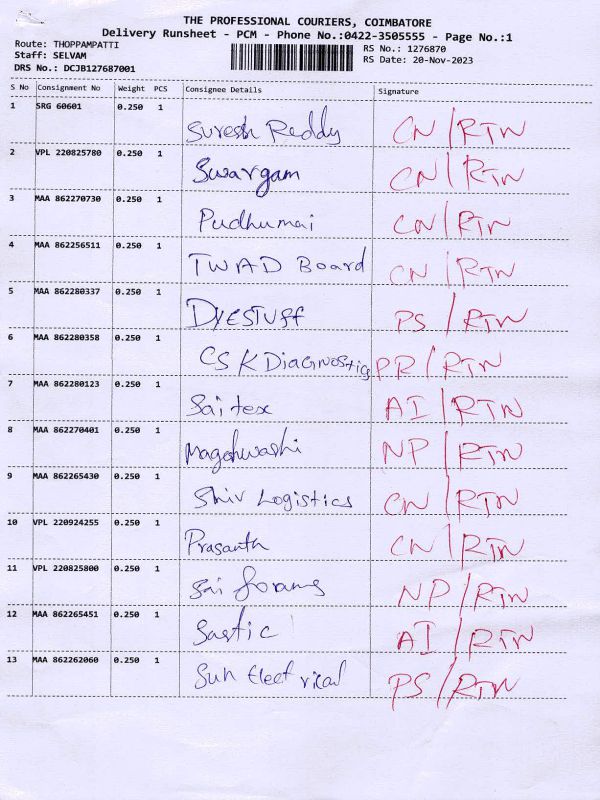 THE PROFESSIONAL COURIERS, COIMBATORE
Delivery Runsheet - PCM - Phone No.:0422-3505555 - Page No.:1
Route: THOPPAMPATTI RS No.: 1276870
Staff: SELVAM RS Date: 20-Nov-2023
DRS No.: DCJB127687001
S No Consignment No Weight PCS Consignee Details Signature
1 SRG 60601 0.250 1 Suresh Reddy CN/RTN
2 VPL 220825780 0.250 1 Swargam CN/RTN
3 MAA 862270730 0.250 1 Pudhumai CN/RTN
4 MAA 862256511 0.250 1 TWAD Board CN/RTN
5 MAA 862280337 0.250 1 DYESTUFF PS/RTN
6 MAA 862280358 0.250 1 CSK Diagnostics PR/RTN
7 MAA 862280123 0.250 1 Saitex AI/RTN
8 MAA 862270401 0.250 1 NP/RTN
9 MAA 862265430 0.250 1 Shiv Logistics CN/RTN
10 VPL 220924255 0.250 1 Prasanth CN/RTN
11 VPL 220825800 0.250 1 Sai NP/RTN
12 MAA 862265451 0.250 1 Sastic AI/RTN
13 MAA 862262060 0.250 1 Sun Electrical PS/RTN